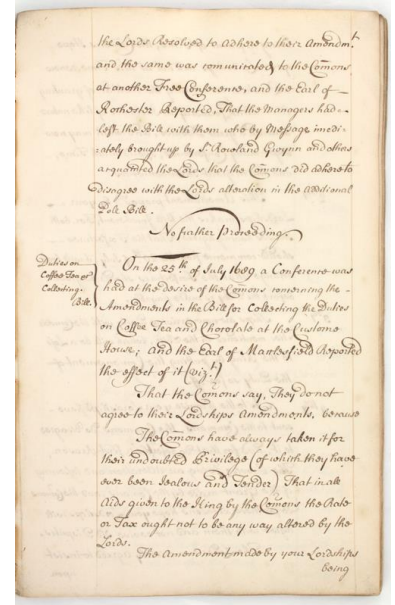 the Lords Resolved to Adhere to their Amendm.t
and the same was comunicated to the Comons
at another Free Conference, and the Earl of
Rochester Reported, That the Managers had
left the Bill with them who by Message imedi-
-ately brought up by Sr. Rowland Gwynn and others
acquainted the Lords that the Comons did adhere to
disagree with the Lords alteration in the additional
Pole Bill.
No further Proceeding.
Duties on
Coffee Tea &c
Collecting.
Bill.
On the 25th of July 1689, a Conference was
had at the desire of the Comons concerning the
Amendments in the Bill for Collecting the Duties
on Coffee Tea and Chocolate at the Custome
House; and the Earl of Macclesfield Reported
the effect of it (viz.t)
That the Comons say, They do not
agree to their Lordships Amendments, because
The Comons have always taken it for
their undoubted Priviledge (of which they have
ever been Jealous and Tender) That in all
Aids given to the King by the Comons the Rate
or Tax ought not to be any way altered by the
Lords.
The Amendments made by your Lordships
being